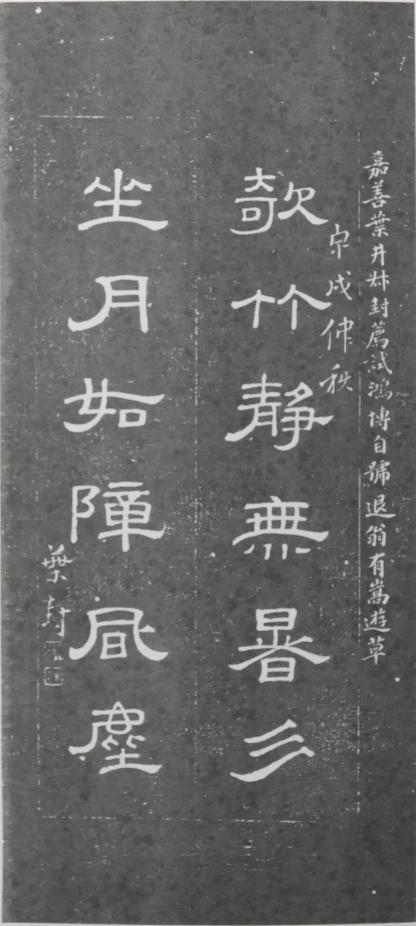 嘉善葉井叔封薦試鴻博自號退翁有嵩遊草
戌仲秋
欹竹靜無彡
坐月如障凬塵
葉封